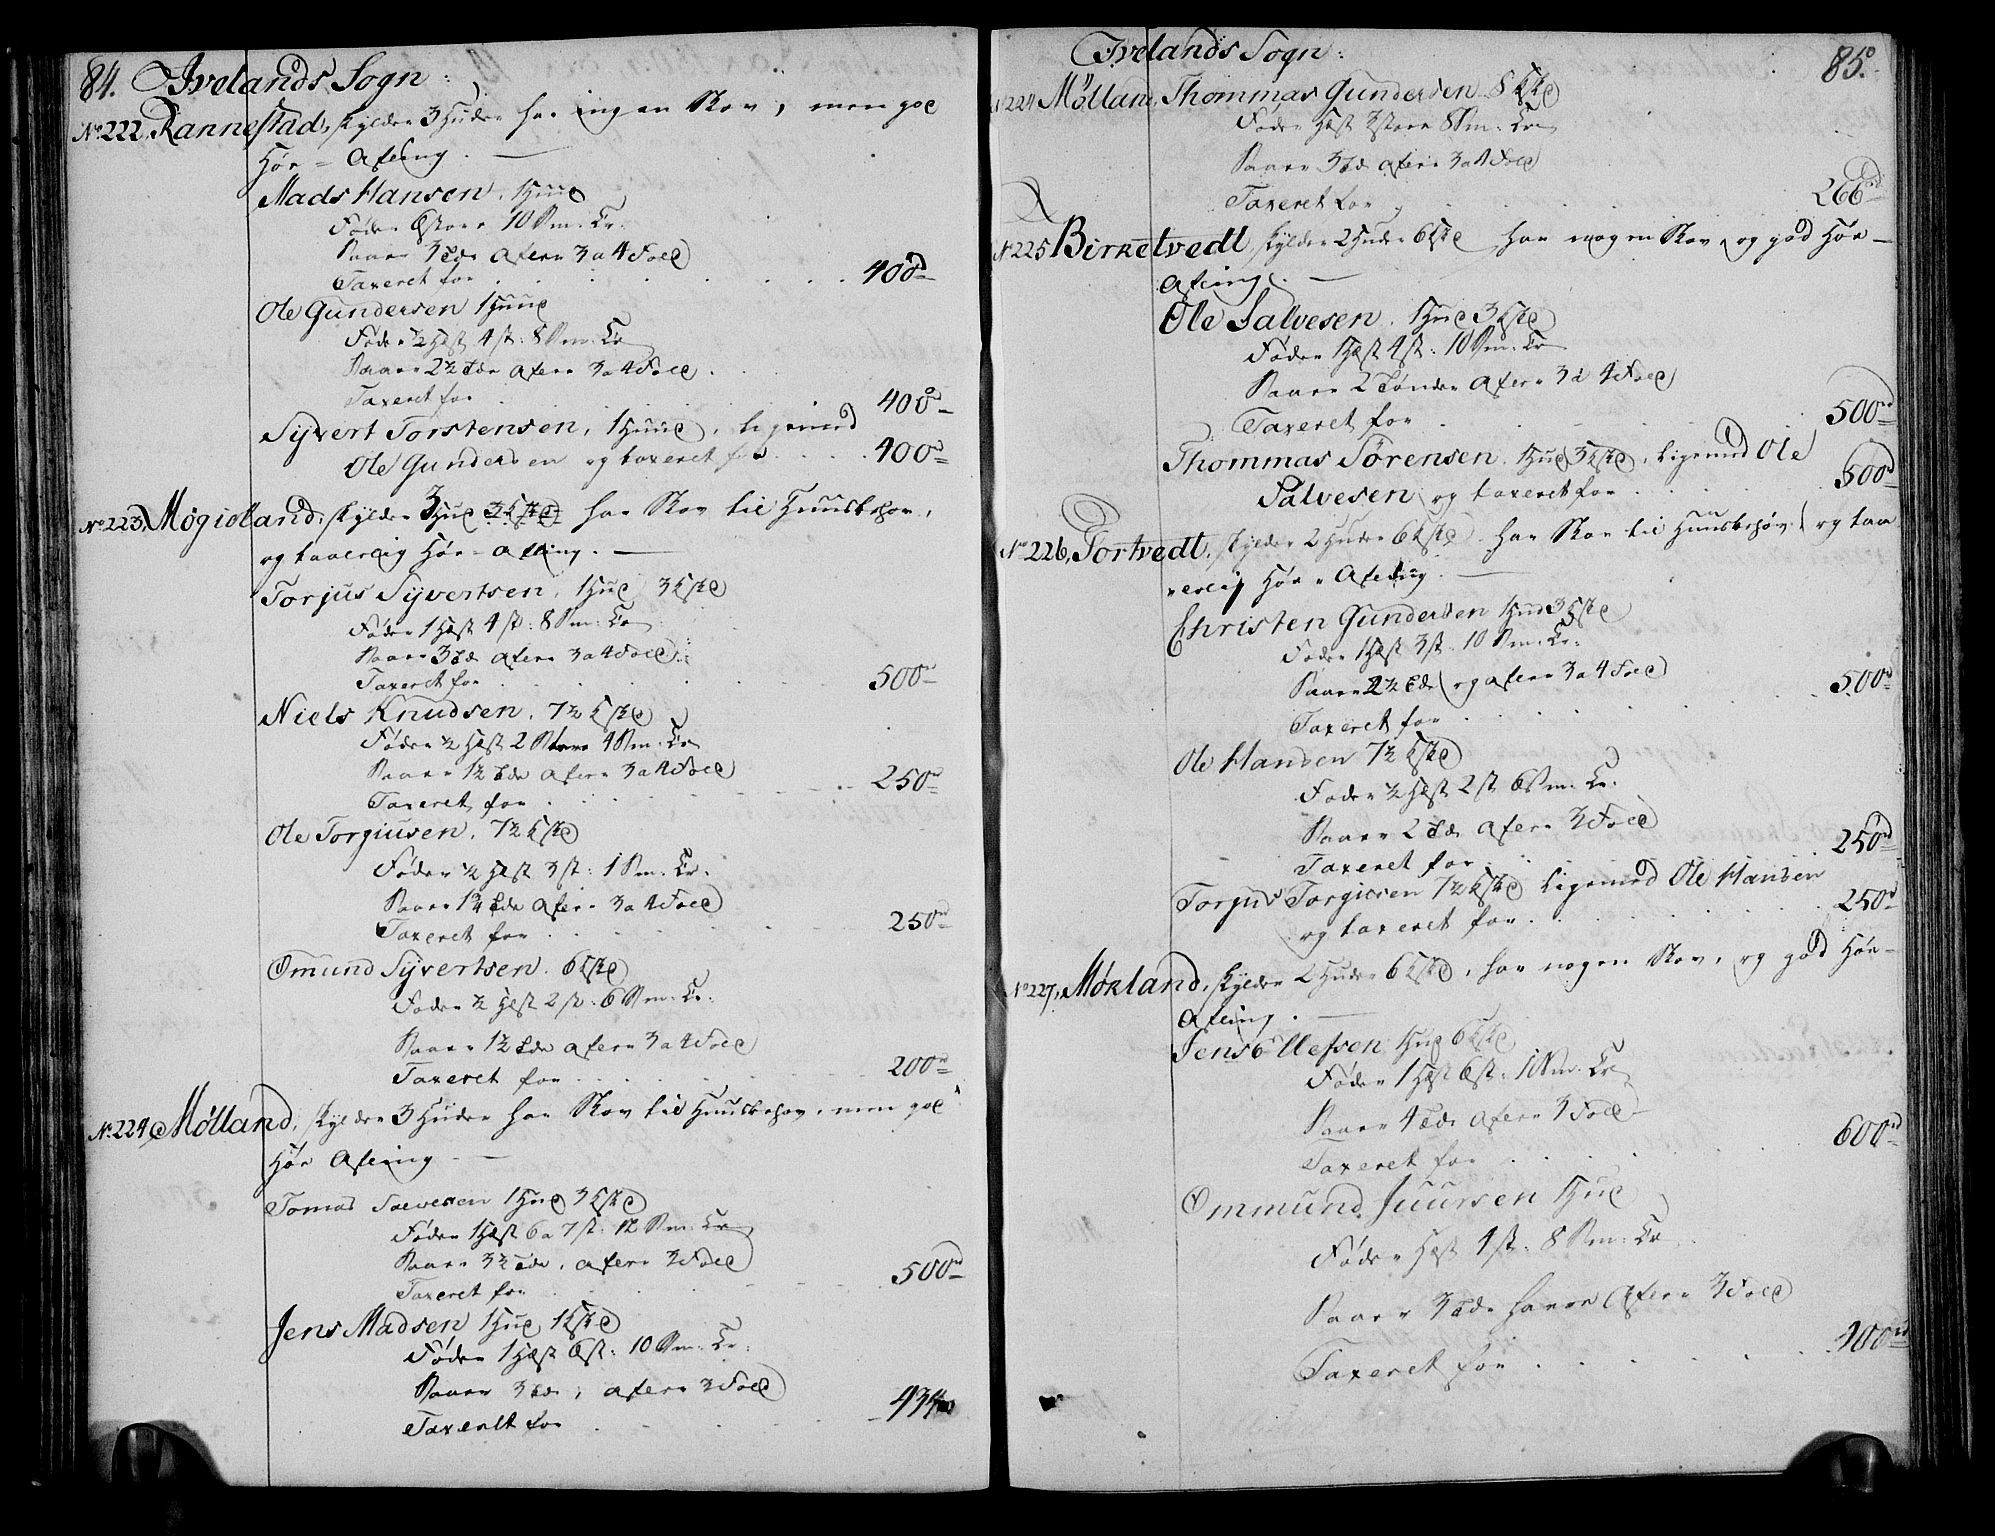 84. Ivelands Sogn:
No 222, Rannestad, skylder 3 Huder har ingen Skov, men god
Høe-Afling. —
Mads Hansen, 1 Hud
Føder 6 store 10 Sm: Cr:
Saaer 3 Tde afler 3 a 4 Fold
Taxeret for 400 rd
Ole Gundersen 1 Hud
Føder ½ Hest 4 st: 8 Sm: Cr
Saaer 2½ Tde afler 3 a 4 Fold
Taxeret for 400 rd
Syvert Torstensen, 1 Hud, ligemed
Ole Gundersen og taxeret for 400 rd
No 223, Møgioland, skylder 3 Hud 3 Kske har Skov til Huusbehov,
og taalelig Høe-Afling. —
Torjus Syvertsen, 1 Hud 3 Kske
Føder 1 Hest 4 st: 8 Sm: Cr
Saaer 3 Tde afler 3 a 4 Fold
Taxeret for 500 rd
Niels Knudsen, 7½ Kske
Føder ½ Hest 2 Store 4 Sm: Cr
Saaer 1½ Tde afler 3 a 4 Fold
Taxeret for 250 rd
Ole Torgiusen, 7½ Kske
Føder ½ Hest 3 st: 1 Sm: Cr.
Saaer 1¾ Tde afler 3 a 4 Fold
Taxeret for 250 rd
Omund Syvertsen. 6 Kske
Føder ½ Hest 2 st: 6 Sm: Cr:
Saaer 1½ Tde afler 3 a 4 Fold
Taxeret for 200 rd
No 224, Mølland, skylder 3 Huder har Skov til Huusbehov, men god
Høe Afling —
Tomas Salvesen 1 Hud 3 Kske
Føder 1 Hest 6 a 7 st: 12 Sm: Cr
Saaer 3½ Tde, afler 3 Fold
Taxeret for 500 rd
Jens Madsen 1 Hud 1 Kske
Føder 1 Hest 6 st: 10 Sm: Cr:
Saaer 3 Tde, afler 3 Fold
Taxeret for 434
Ivelands Sogn: 85.
No 224 Mølland, Thommas Gundersen 8 Kske
Føder Hest 3 store 8 Sm: Cr
Saaer 3 Tde afler 3 a 4 Fold
Taxeret for 266 rd
No 225 Birketvedt, skylder 2 Huder 6 Kske har nogen Skov, og god Høe-
Afling. —
Ole Salvesen, 1 Hud 3 Kske
Føder 1 Hest 4 st: 10 Sm: Cr
Saaer 2 Tønder afler 3 a 4 Fold
Taxeret for 500 rd
Thommas Sørensen, 1 Hud 3 Kske, ligemed Ole
Salvesen og taxeret for 500 rd
No 226, Tortvedt, skylder 2 Huder 6 Kske har Skov til Huusbehov, og taa
lelig Høe-Afling. —
Christen Gundersen 1 Hud 3 Kske
Føder 1 Hest 3 st: 10 Sm: Cr:
Saaer 2½ Tde og afler 3 a 4 Fold
Taxeret for 500 rd
Ole Hansen 7½ Kske
Føder ½ Hest 2 st 6 Sm: Cr:
Saaer 2 Tde afler 3 Fold
Taxeret for 250 rd
Torjus Torgiersen 7½ Kske ligemed Ole Hansen
og taxeret for 250 rd
No 227, Mørland, skylder 2 Huder 6 Kske, har nogen Skov, og god Høe-
Afling. —
Jens Ellefsen 1 Hud 6 Kske
Føder 1 Hest 6 st: Sm: Cr
Saaer 4 Tde afler 3 Fold
Taxeret for 600 rd
Ommund Juursen 1 Hud
Føder Hest 4 st: 8 Sm: Cr
Saaer 3 Tde Afler 3 Fold
Taxeret for 400 rd